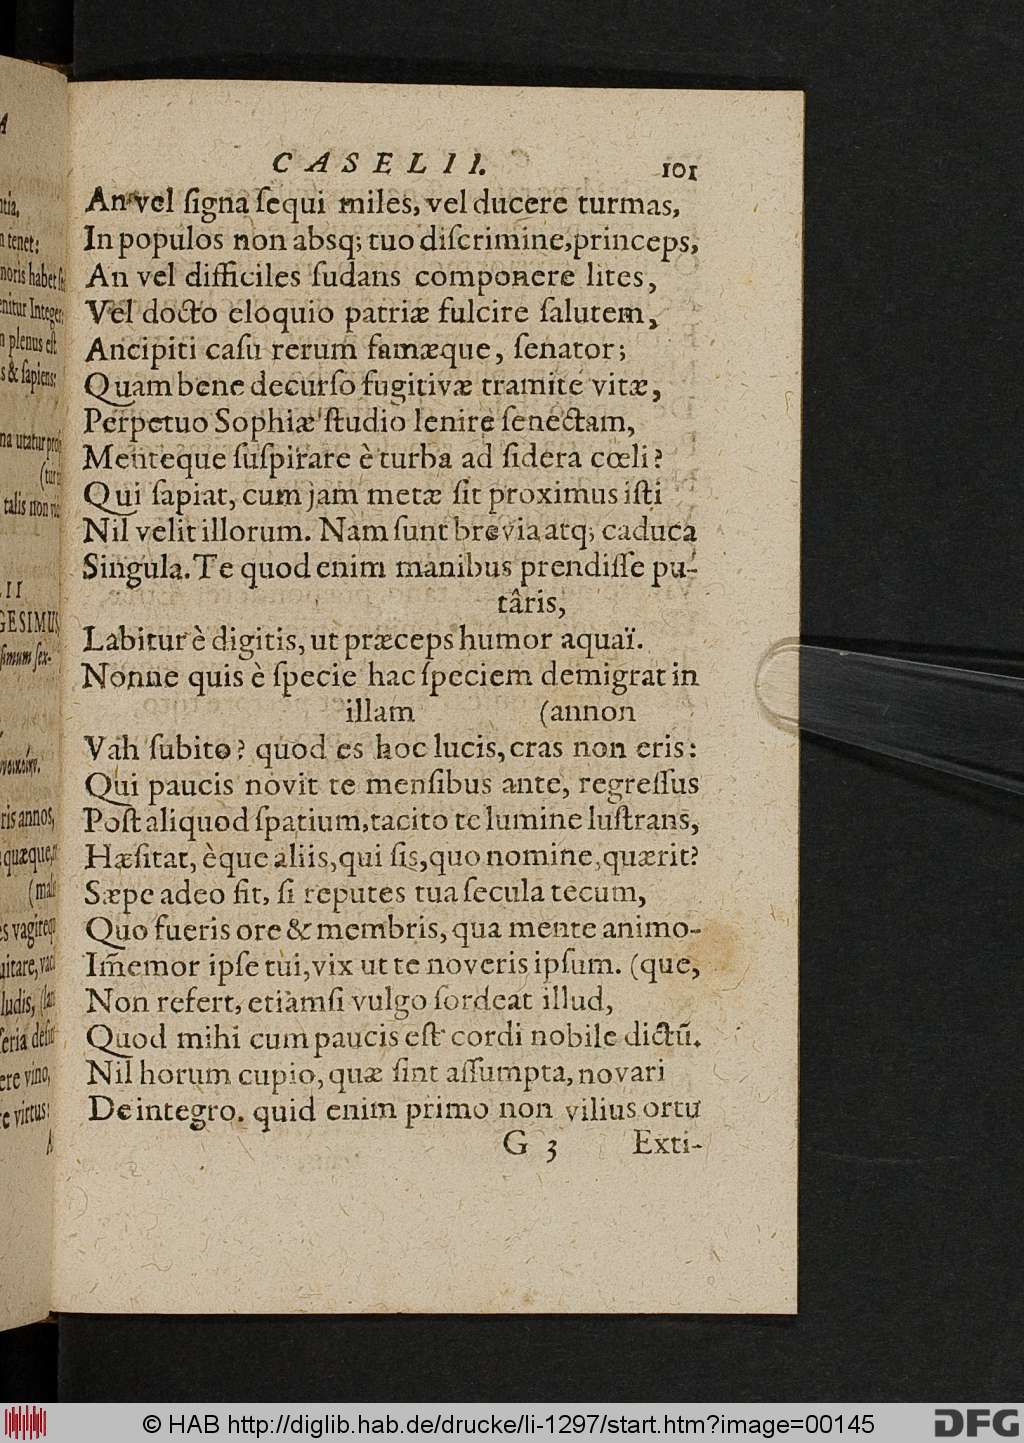 CASELII. 101
An vel ſigna ſequi miles, vel ducere turmas,
In populos non absq; tuo diſcrimine, princeps,
An vel difficiles ſudans componere lites,
Vel docto eloquio patriæ fulcire ſalutem,
Ancipiti caſu rerum famæque, ſenator;
Quam bene decurſo fugitivæ tramite vitæ,
Perpetuo Sophiæ ſtudio lenire ſenectam,
Menteque ſuſpirare è turba ad ſidera cœli?
Qui ſapiat, cum jam metæ ſit proximus iſti
Nil velit illorum. Nam ſunt brevia atq; caduca
Singula. Te quod enim manibus prendiſſe pu-
târis,
Labitur è digitis, ut præceps humor aquaï.
Nonne quis è ſpecie hac ſpeciem demigrat in
illam (annon
Vah ſubito? quod es hoc lucis, cras non eris:
Qui paucis novit te menſibus ante, regreſſus
Poſt aliquod ſpatium, tacito te lumine luſtrans,
Hæſitat, èque aliis, qui ſis, quo nomine, quærit?
Sæpe adeo fit, ſi reputes tua ſecula tecum,
Quo fueris ore & membris, qua mente animo-
Im̃emor ipſe tui, vix ut te noveris ipſum. (que,
Non refert, etiamſi vulgo ſordeat illud,
Quod mihi cum paucis eſt cordi nobile dictũ.
Nil horum cupio, quæ ſint aſſumpta, novari
De integro. quid enim primo non vilius ortu
G 3 Exti-
tia,
n tenet:
noris habet
enitur Integer
n plenus eſt
s & ſapiens;
na utatur
(tur
talis non
LII
GESIMUS
ris annos,
quæque,
(mali
es vagire
ludis,
ſeria
ere vino,
re virtus:
A
© HAB http://diglib.hab.de/drucke/li-1297/start.htm?image=00145
DFG